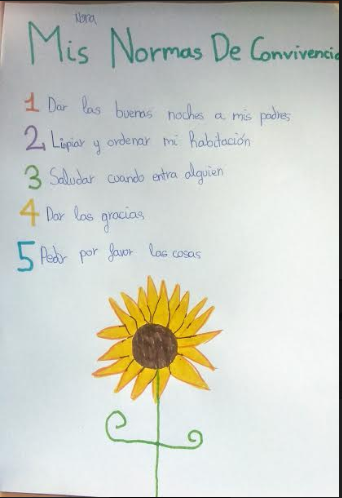 Nora
Mis Normas De Convivencia
1 Dar las buenas noches a mis padres
2 Lipiar y ordenar mi habitación
3 Saludar cuando entra alguien
4 Dar las gracias
5 Pedir por favor las cosas